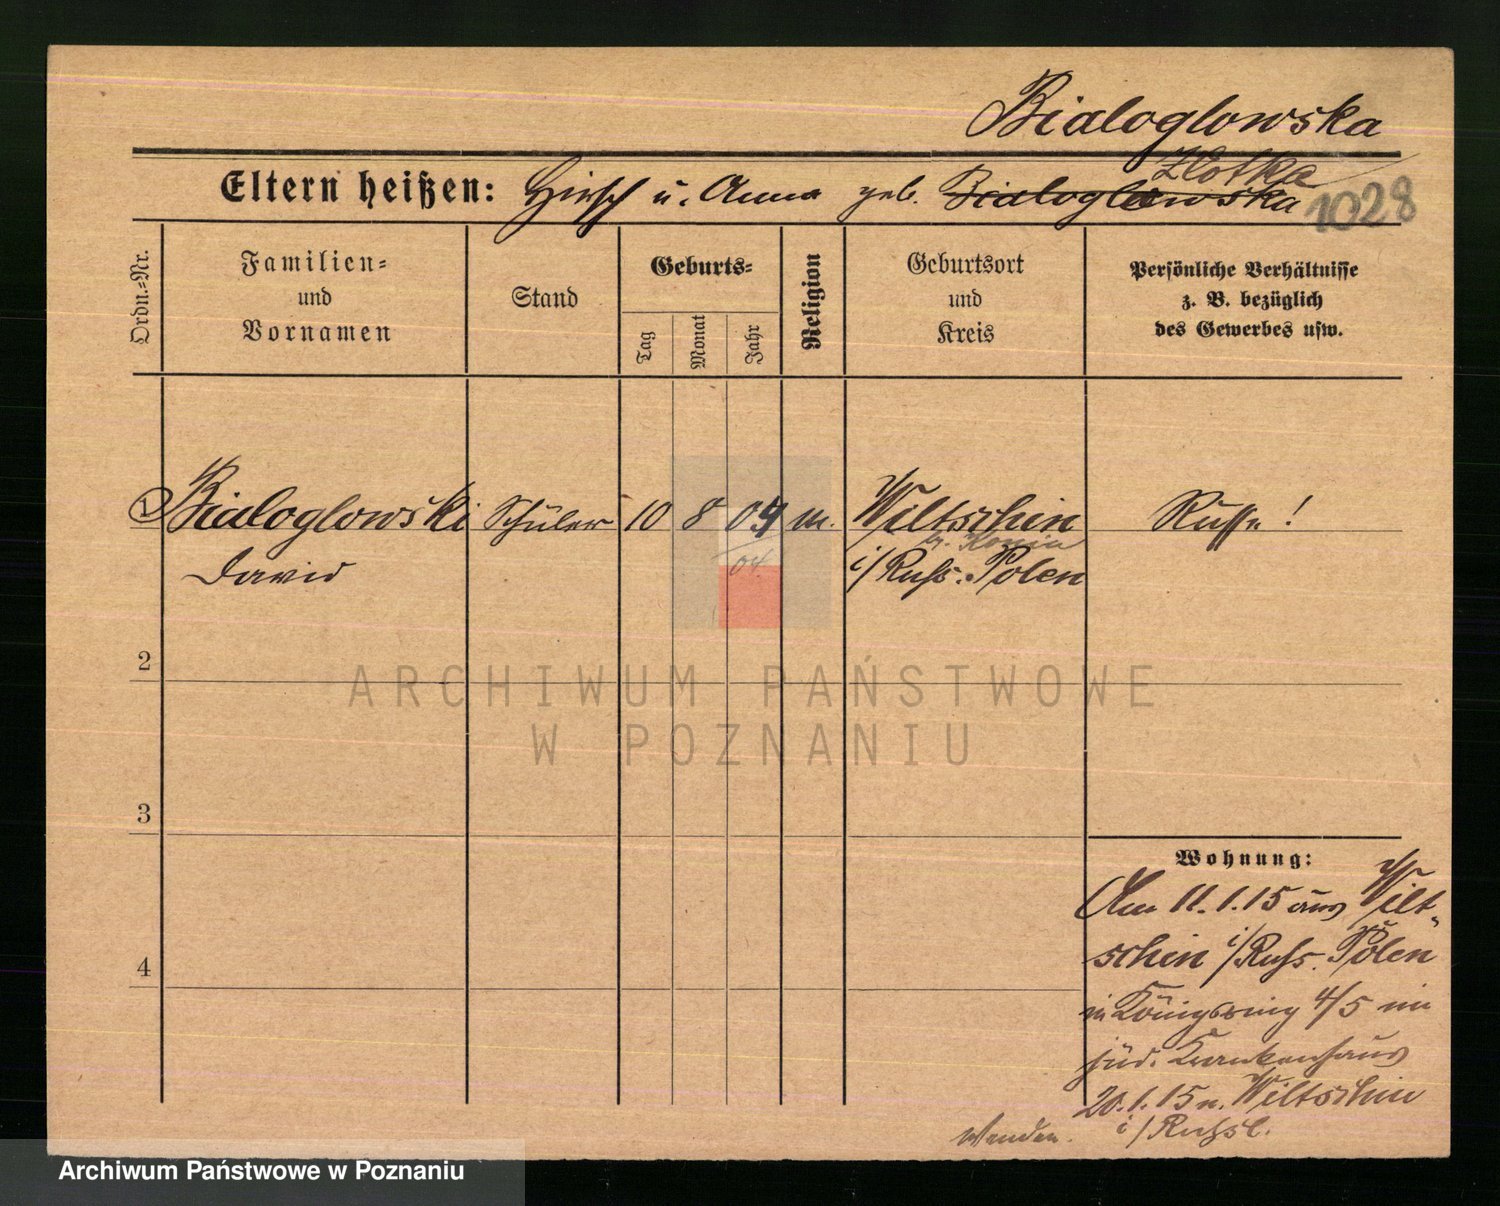 Bialoglowska
Eltern heißen: Hirsch u. Anna geb. Bialoglowska Zlotka 1028
Ordn.-Nr.
Familien-
und
Vornamen
Stand
Geburts-
Tag
Monat
Jahr
Religion
Geburtsort
und
Kreis
Persönliche Verhältnisse
z. B. bezüglich
des Gewerbes usw.
1 Bialoglowski Schüler 10 8 04 m. Wiltschin Russe!
Kr. Konin
04
David i/Russ. Polen
2
ARCHIWUM PAŃSTWOWE
W POZNANIU
3
Wohnung:
Am 11.1.15 aus Wilt-
schin i/Russ. Polen
4
in Königsring 4/5 im
jüd. Krankenhaus
20.1.15 n. Wiltschin
i/Russl.
Wenden.
Archiwum Państwowe w Poznaniu